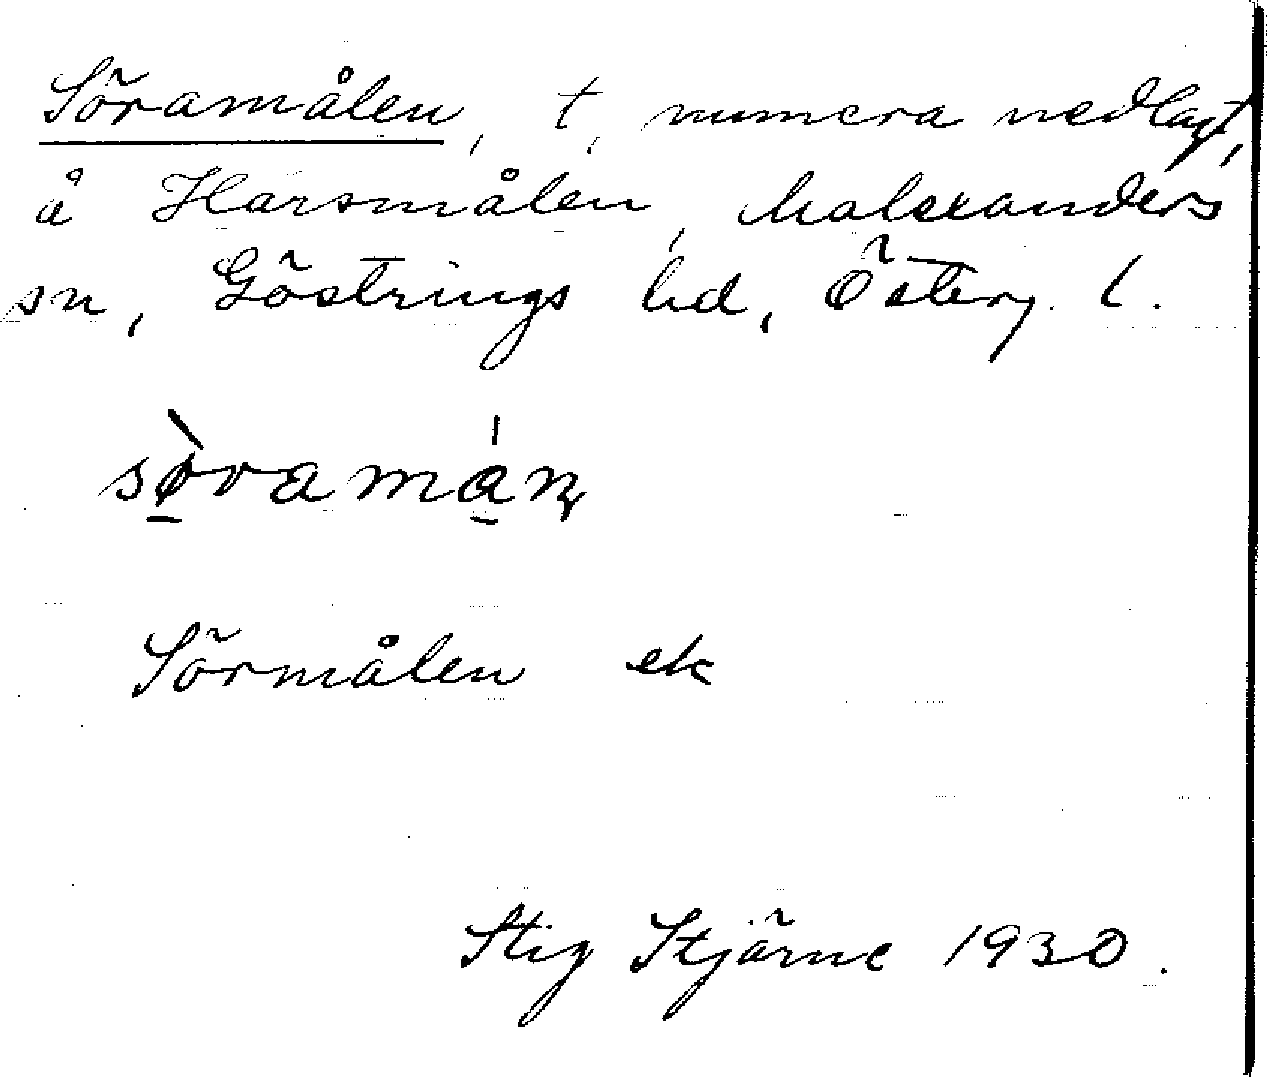 Söramålen, t, numera nedlagt,
å Harsmålen, Malexanders
sn, Göstrings hd, Österg. l.
sø̀ramán
Sörmålen ek
Stig Stjärne 1930.